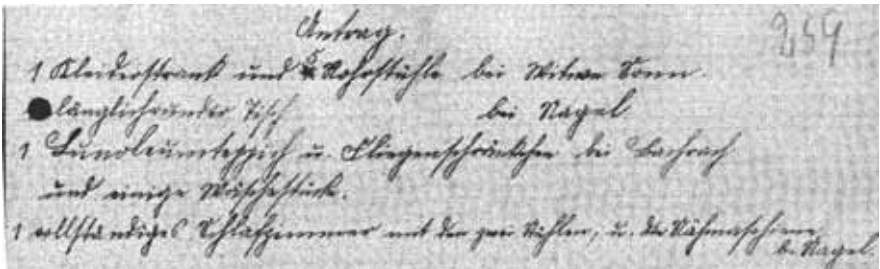 Antrag. 259
1 Kleiderstrank und 5 Rohrstühle bei Witwe Sonn.
länglichrunder Tisch bei Nagel
1 Lunoleumteppich u. Fliegenschränkchen bei Bachrach
und einige Wäschestück.
1 vollständiges Schlafzimmer mit den zwei Stühlen, u. die Nähmaschine
b. Nagel.